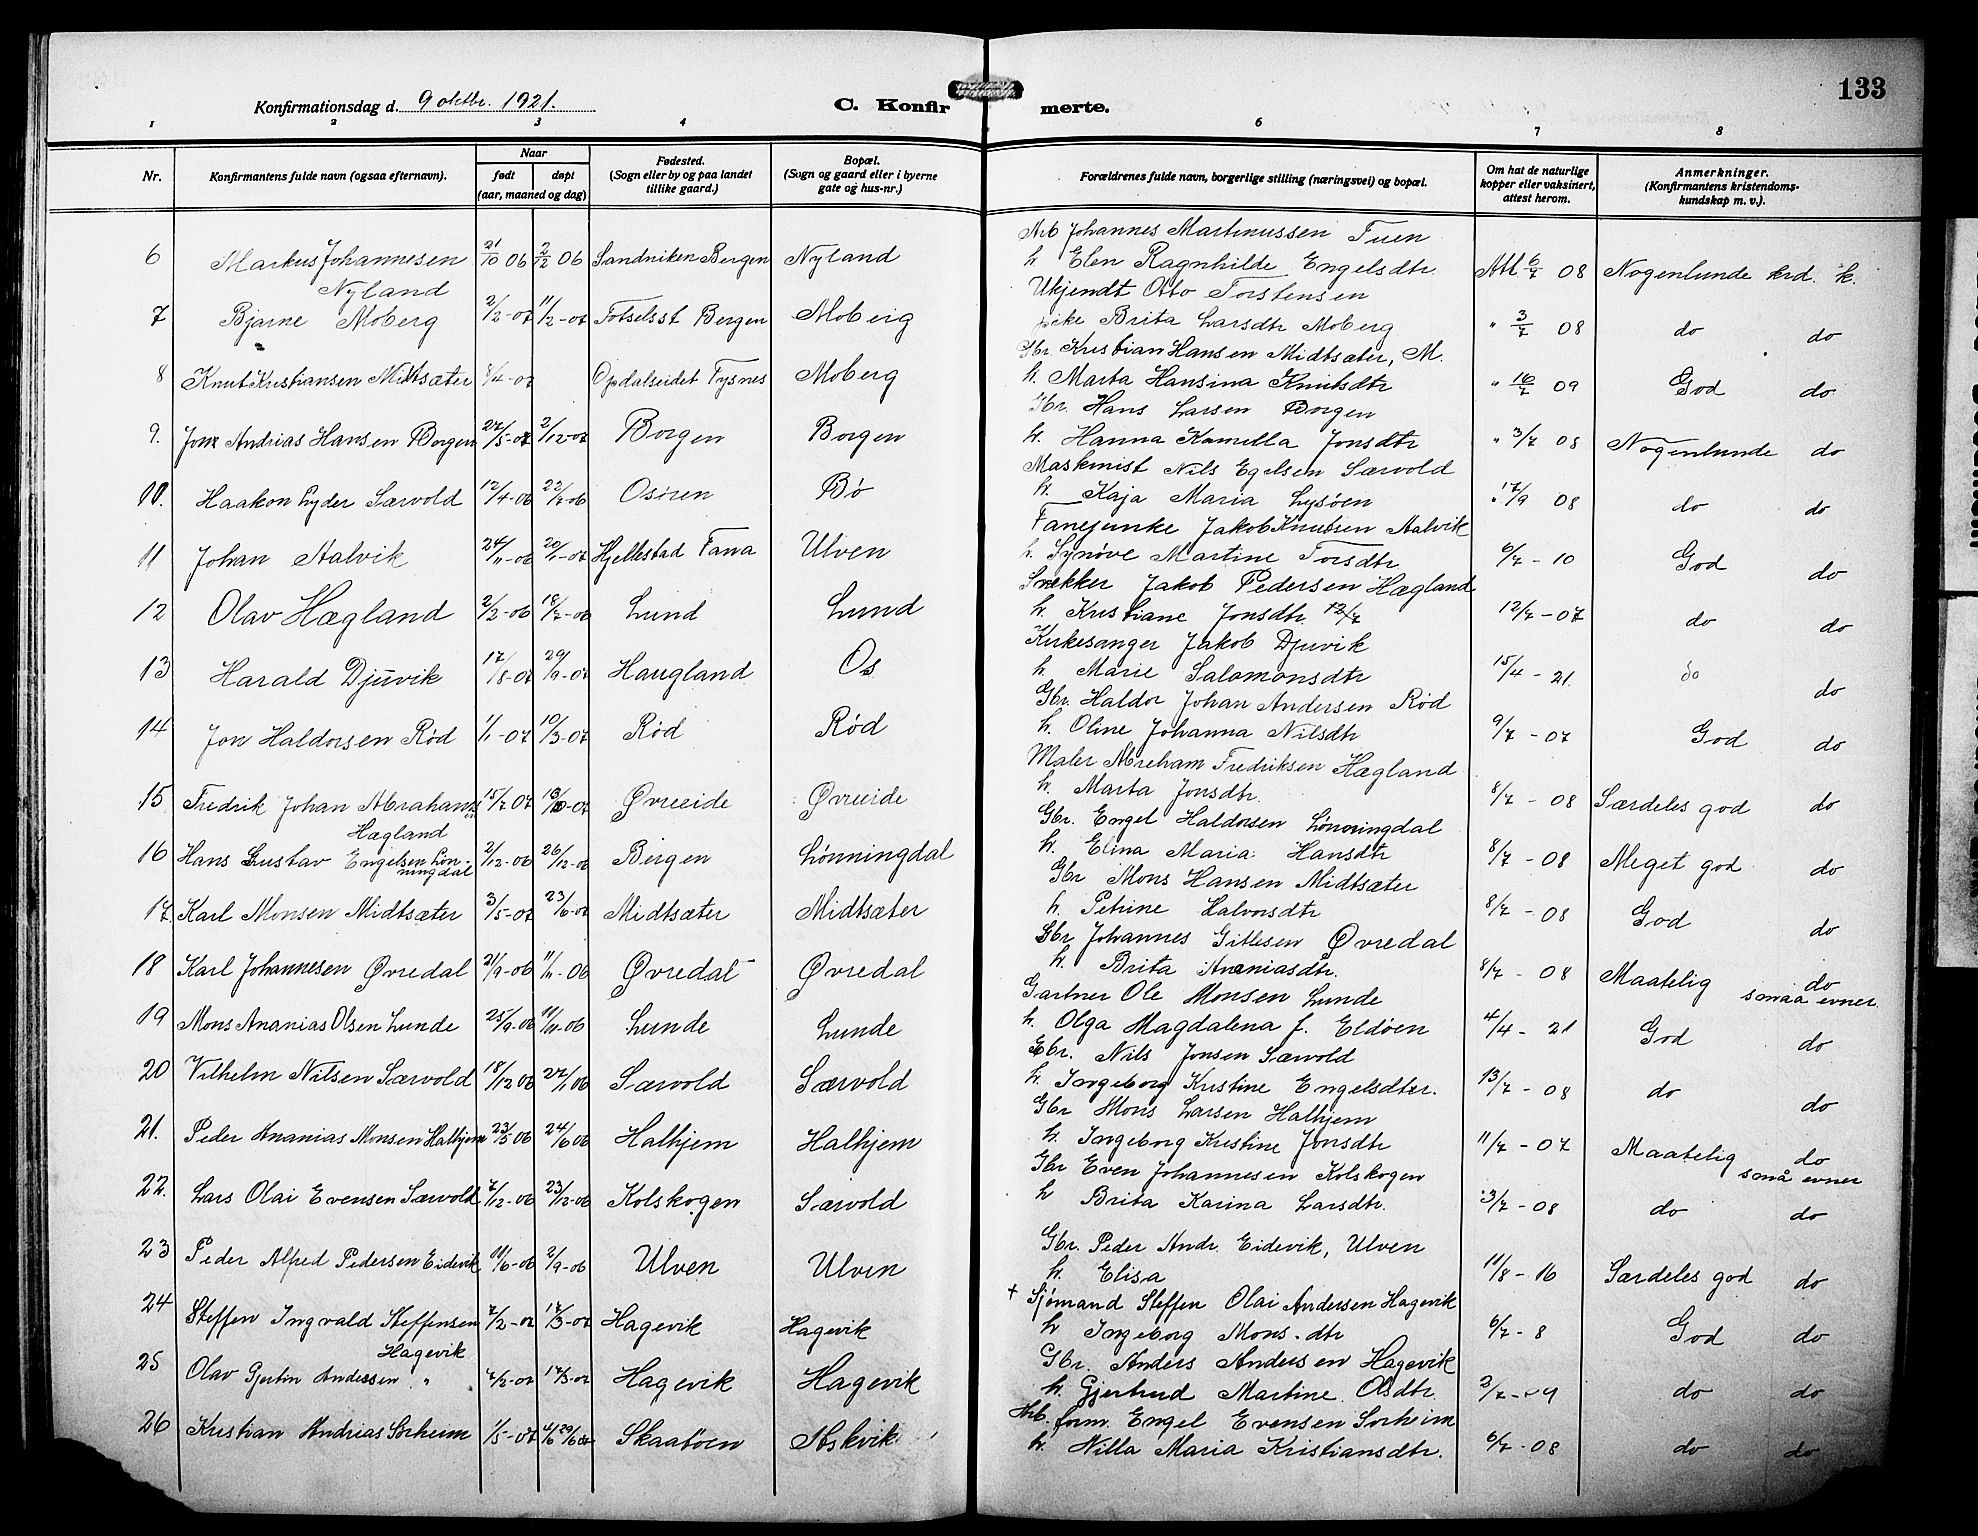 133
Konfirmationsdag d. 9 oktbr. 1921.
C. Konfirmerte.
1 2 3 4 6 7 8
Nr.
Konfirmantens fulde navn (ogsaa efternavn).
Naar
født
døpt
(aar, maaned og dag)
Fødested.
(Sogn eller by og paa landet
tillike gaard.)
Bopæl.
(Sogn og gaard eller i byerne
gate og hus-nr.)
Forældrenes fulde navn, borgerlige stilling (næringsvei) og bopæl.
Om hat de naturlige
kopper eller vaksinert,
attest herom.
Anmerkninger.
(Konfirmantens kristendoms-
kundskap m. v.).
6 Markus Johannesen Nyland 21/10 06 2/12 06 Sandviken Bergen Nyland
Arb Johannes Martinussen Tuen
h. Elen Ragnhilde Engelsdtr Att 6/7 08 Nogenlunde krd. k.
7 Bjarne Moberg 2/2-07 11/2-07 Fødselsst Bergen Moberg
Ukjendt Otto Torstensen
pike Brita Larsdtr Moberg " 3/7 08 do do
8 Knut Kristiansen Midtsæter 8/4-07 Opdalseidet Tysnes Moberg
Gbr. Kristian Hansen Midtsæter, M.
h. Marta Hansina Knutsdtr " 16/7 09 God do
9. Jon Andrias Hansen Borgen 27/5-07 2/12-07 Borgen Borgen
Gbr. Hans Larsen Borgen
h. Hanna Kamella Jonsdtr " 3/7 08 Nogenlunde do
10. Haakon Lyder Særvold 12/4-06 22/7-06 Osøren Bø
Maskinist Nils Egelsen Særvold
h. Kaja Maria Lysøen 17/9 08 do do
11 Johan Aalvik 24/11-06 20/1-07 Hjellestad Fana Ulven
Fanejunke Jakob Knutsen Aalvik
h. Synøve Martine Torsdtr 6/7-10 God do
12 Olav Hægland 2/2-06 18/7-06 Lund Lund
Snekker Jakob Pedersen Hægland
h. Kristiane Jonsdtr 12/7 12/7-07 do do
13 Harald Djuvik 17/8-07 29/9-07 Haugland Os
Kirkesanger Jakob Djuvik
h. Marie Salomonsdtr 15/4-21 do do
14 Jon Haldorsen Rød 1/1-07 10/3-07 Rød Rød
Gbr. Haldor Johan Andersen Rød
h. Oline Johanna Nilsdtr 9/7-07 God do
15 Fredrik Johan Abrahamsen Hægland 15/7 07 13/10-07 Øvreeide Øvreeide
Maler Abreham Fredriksen Hægland
h. Marta Jonsdtr. 8/7-08 Særdeles god do
16 Hans Gustav Engelsen Lønningdal 2/12-06 26/12-06 Bergen Lønningdal
Gbr. Engel Haldorsen Lønningdal
h. Elina Maria Hansdtr 8/7-08 Meget god do
17. Karl Monsen Midtsæter 3/5-07 23/6-07 Midtsæter Midtsæter
Gbr Mons Hansen Midtsæter
h. Petrine Halvorsdtr 8/7-08 God do
18 Karl Johannesen Øvredal 21/9-06 11/11-06 Øvredal Øvredal
Gbr. Johannes Gitlesen Øvredal
h. Brita Ananiasdtr. 8/7-08 Maatelig do
smaa evner
19 Mons Ananias Olsen Lunde 25/9-06 11/11-06 Lunde Lunde
Gartner Ole Monsen Lunde
h. Olga Magdalena f. Eldøen 4/4-21 God do
20 Vilhelm Nilsen Særvold 18/12 06 27/1 06 Særvold Særvold
Gbr. Nils Jonsen Særvold
h. Ingeborg Kristine Engelsdtr. 13/7-08 do do
21. Peder Ananias Monsen Halhjem 23/5 06 24/6 06 Halhjem Halhjem
Gbr Mons Larsen Halhjem
h. Ingeborg Kristine Jonsdtr 11/7-07 Maatelig do
små evner
22. Lars Olai Evensen Særvold 7/12-06 23/12-06 Kolskogen Særvold
Gbr Even Johannesen Kolskogen
h Brita Karina Larsdtr. 3/7-08 do do
23 Peder Alfred Pedersen Eidevik 11/6-06 2/9-06 Ulven Ulven
Gbr. Peder Andr. Eidevik, Ulven
h. Elisa 11/8-16 Særdeles god do
24 Steffen Ingvald Steffensen Hagevik 7/2-07 17/3-07 Hagevik Hagevik
+ Sjømand Steffen Olai Andersen Hagevik
h Ingeborg Mons-dtr 6/7-8 God do
25 Olav Gjertin Andersen " 7/2-07 17/3-07 Hagevik Hagevik
Gbr. Anders Andersen Hagevik
h. Gjertrud Martine Olsdtr. 2/7-09 do do
26 Kristian Andrias Sørheim 1/5-07 Skaatøen Askvik
Arb. form. Engel Evensen Sørheim
h. Nilla Maria Kristiansdtr. 6/7-08 do do